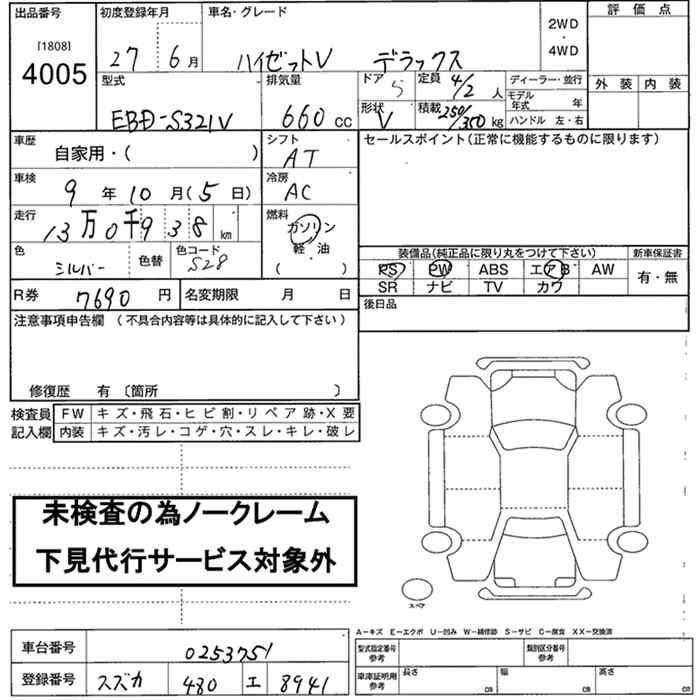 出品番号 初度登録年月 車名・グレード 2WD・4WD 評価点
[1808]
4005
27 6月 ハイゼットV デラックス
型式 排気量 ドア 5 定員 4/2 人 ディーラー・並行 外装 内装
EBD-S321V 660 cc 形状 V 積載 250/350 kg モデル年式 年
ハンドル 左・右
車歴 シフト セールスポイント(正常に機能するものに限ります)
自家用・( ) AT
車検 冷房
9年 10月(5日) AC
走行 燃料
13万0千938km ガソリン
軽・油
( )
色 色替 色コード 装備品(純正品に限り丸をつけて下さい) 新車保証書
シルバー S28 PS PW ABS エアB AW 有・無
SR ナビ TV カワ
R券 7690円 名変期限 月 日 後日品
注意事項申告欄 (不具合内容等は具体的に記入して下さい)
修復歴 有 〔箇所 〕
検査員 FW キズ・飛石・ヒビ割・リペア跡・X要
記入欄 内装 キズ・汚レ・コゲ・穴・スレ・キレ・破レ
未検査の為ノークレーム
下見代行サービス対象外
スペア
A−キズ E−エクボ U−凹み W−補修跡 S−サビ C−腐食 XX−交換済
車台番号 0253751 型式指定番号 参考 類別区分番号 参考
登録番号 スズカ 480 エ 8941 車庫証明用 参考 長さ cm 幅 cm 高さ cm